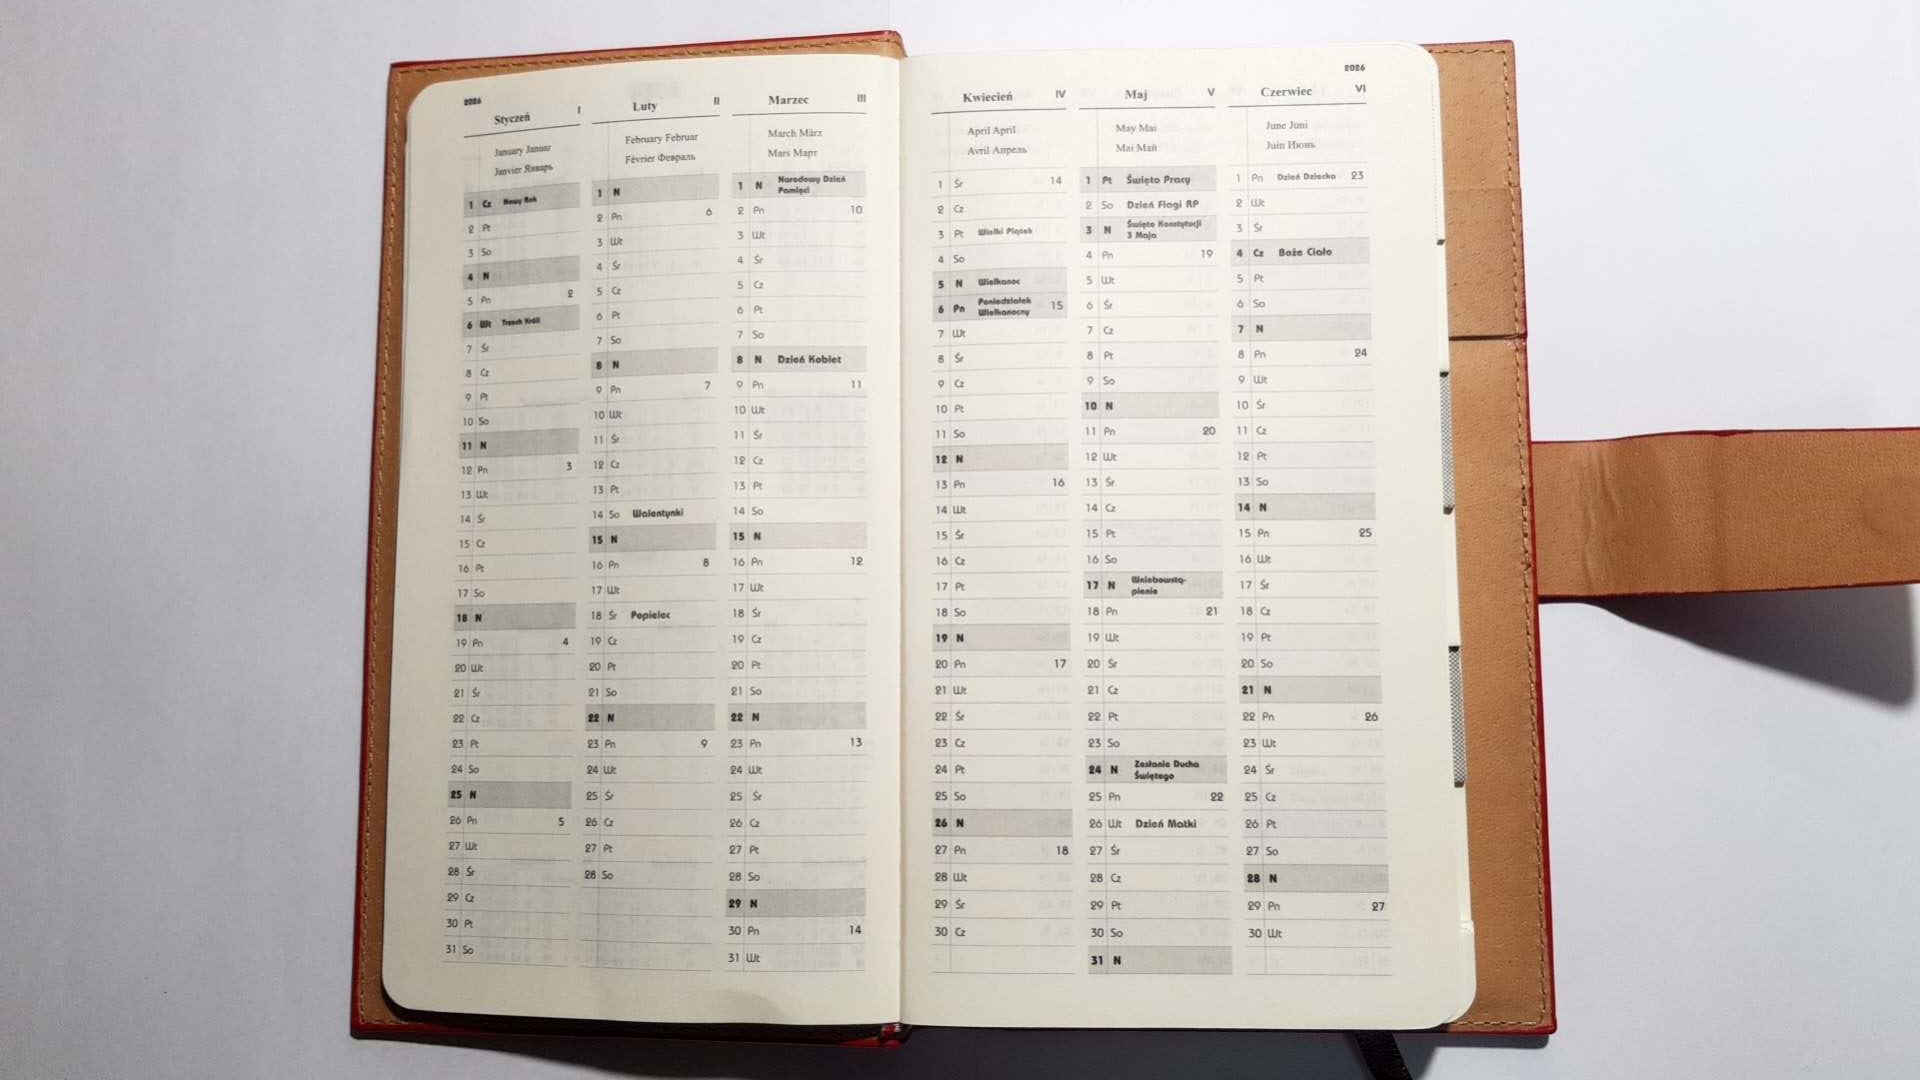 2026
Styczeń I
January Januar
Janvier Январь
1 Cz Nowy Rok
2 Pt
3 So
4 N
5 Pn 2
6 Wt Trzech Króli
7 Śr
8 Cz
9 Pt
10 So
11 N
12 Pn 3
13 Wt
14 Śr
15 Cz
16 Pt
17 So
18 N
19 Pn 4
20 Wt
21 Śr
22 Cz
23 Pt
24 So
25 N
26 Pn 5
27 Wt
28 Śr
29 Cz
30 Pt
31 So
Luty II
February Februar
Février Февраль
1 N
2 Pn 6
3 Wt
4 Śr
5 Cz
6 Pt
7 So
8 N
9 Pn 7
10 Wt
11 Śr
12 Cz
13 Pt
14 So Walentynki
15 N
16 Pn 8
17 Wt
18 Śr Popielec
19 Cz
20 Pt
21 So
22 N
23 Pn 9
24 Wt
25 Śr
26 Cz
27 Pt
28 So
Marzec III
March März
Mars Март
1 N Narodowy Dzień
Pamięci
2 Pn 10
3 Wt
4 Śr
5 Cz
6 Pt
7 So
8 N Dzień Kobiet
9 Pn 11
10 Wt
11 Śr
12 Cz
13 Pt
14 So
15 N
16 Pn 12
17 Wt
18 Śr
19 Cz
20 Pt
21 So
22 N
23 Pn 13
24 Wt
25 Śr
26 Cz
27 Pt
28 So
29 N
30 Pn 14
31 Wt
2026
Kwiecień IV
April April
Avril Апрель
1 Śr 14
2 Cz
3 Pt Wielki Piątek
4 So
5 N Wielkanoc
6 Pn Poniedziałek
Wielkanocny 15
7 Wt
8 Śr
9 Cz
10 Pt
11 So
12 N
13 Pn 16
14 Wt
15 Śr
16 Cz
17 Pt
18 So
19 N
20 Pn 17
21 Wt
22 Śr
23 Cz
24 Pt
25 So
26 N
27 Pn 18
28 Wt
29 Śr
30 Cz
Maj V
May Mai
Mai Май
1 Pt Święto Pracy
2 So Dzień Flagi RP
3 N Święto Konstytucji
3 Maja
4 Pn 19
5 Wt
6 Śr
7 Cz
8 Pt
9 So
10 N
11 Pn 20
12 Wt
13 Śr
14 Cz
15 Pt
16 So
17 N Wniebowstą-
pienie
18 Pn 21
19 Wt
20 Śr
21 Cz
22 Pt
23 So
24 N Zesłanie Ducha
Świętego
25 Pn 22
26 Wt Dzień Matki
27 Śr
28 Cz
29 Pt
30 So
31 N
Czerwiec VI
June Juni
Juin Июнь
1 Pn Dzień Dziecka 23
2 Wt
3 Śr
4 Cz Boże Ciało
5 Pt
6 So
7 N
8 Pn 24
9 Wt
10 Śr
11 Cz
12 Pt
13 So
14 N
15 Pn 25
16 Wt
17 Śr
18 Cz
19 Pt
20 So
21 N
22 Pn 26
23 Wt
24 Śr
25 Cz
26 Pt
27 So
28 N
29 Pn 27
30 Wt